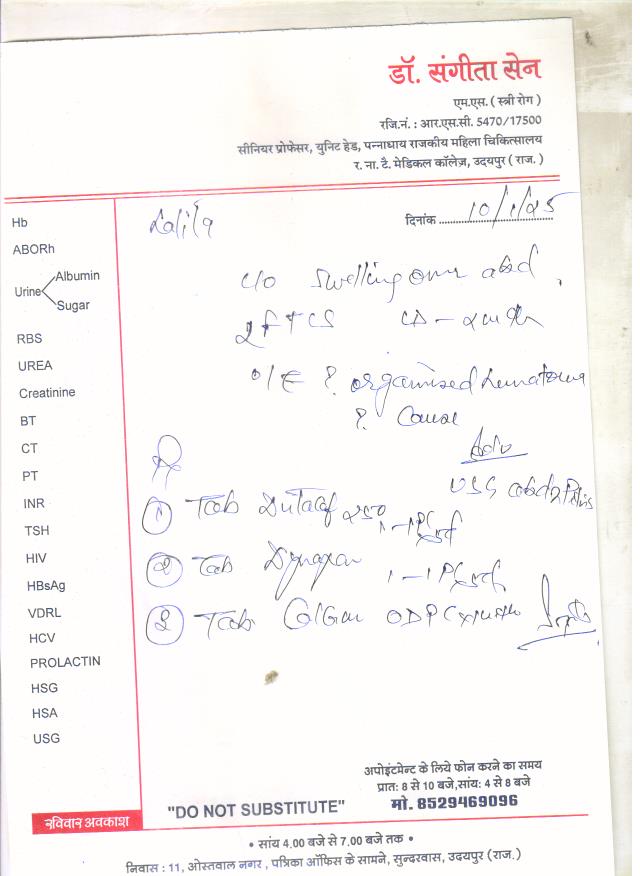 डॉ. संगीता सेन
एम.एस. ( स्त्री रोग )
रजि.नं. : आर.एस.सी. 5470/17500
सीनियर प्रोफेसर, युनिट हेड, पन्नाधाय राजकीय महिला चिकित्सालय
र. ना. टै. मेडिकल कॉलेज, उदयपुर ( राज. )
दिनांक 10/1/25
Hb
ABORh
Urine Albumin
Sugar
RBS
UREA
Creatinine
BT
CT
PT
INR
TSH
HIV
HBsAg
VDRL
HCV
PROLACTIN
HSG
HSA
USG
Lalita
c/o swelling over abd
O/E ? organised hematoma
? Cause
Adv
USG abd & Pelvis
Rx
① Tab 250 1-1
② Tab Dynapar 1-1
③ Tab OD
अपोइंटमेन्ट के लिये फोन करने का समय
प्रात: 8 से 10 बजे,सांय: 4 से 8 बजे
"DO NOT SUBSTITUTE" मो. 8529469096
रविवार अवकाश
• सांय 4.00 बजे से 7.00 बजे तक •
निवास : 11, ओस्तवाल नगर , पत्रिका ऑफिस के सामने, सुन्दरवास, उदयपुर (राज.)